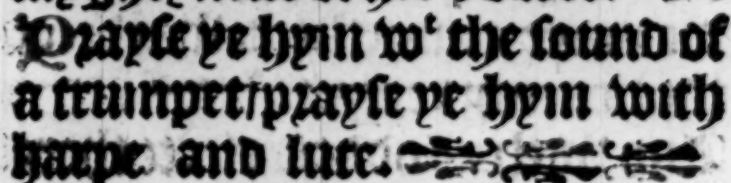 Prayſe ye hym wᵗ the ſound of
a trumpet/prayſe ye hym with
harpe and lute.